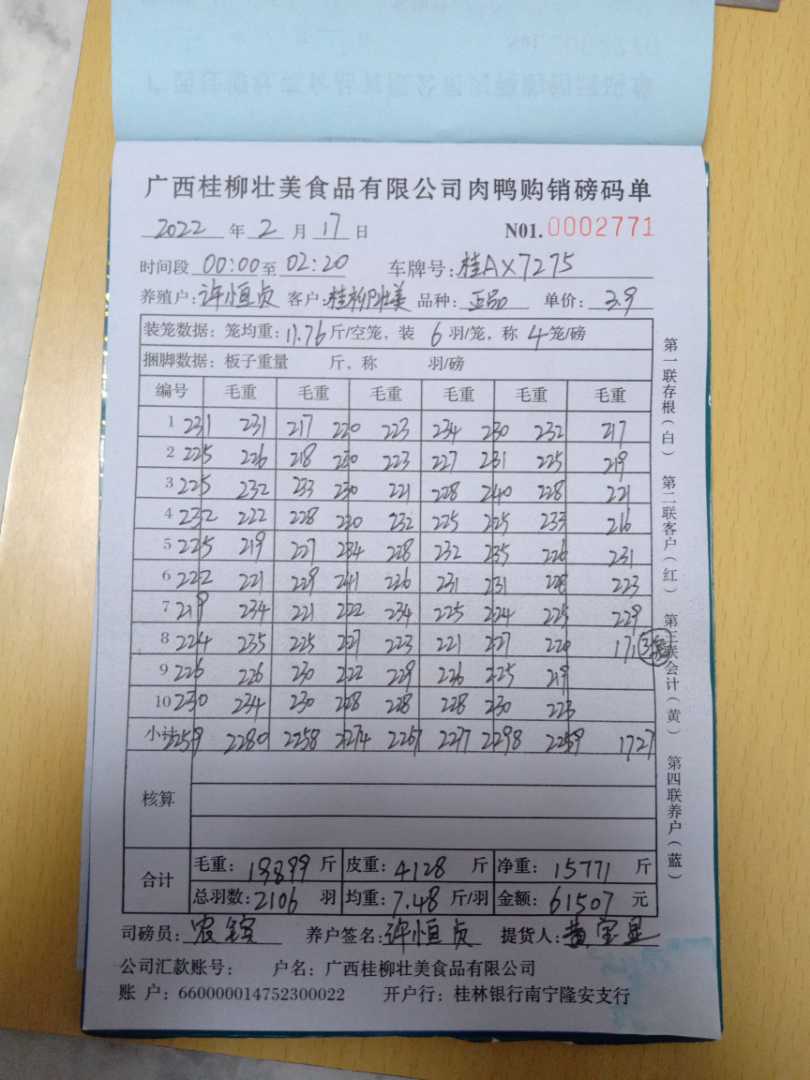 广西桂柳壮美食品有限公司肉鸭购销磅码单
2022 年 2 月 17 日 N01.0002771
时间段 00:00 至 02:20 车牌号: 桂AX7275
养殖户: 许恒贞 客户: 桂柳壮美 品种: 正品 单价: 3.9
装笼数据: 笼均重: 11.76 斤/空笼, 装 6 羽/笼, 称 4 笼/磅
捆脚数据: 板子重量 斤, 称 羽/磅
编号 毛重 毛重 毛重 毛重 毛重 毛重
1 231 231 217 220 223 234 230 232 217
2 225 226 218 230 223 227 231 225 219
3 225 232 233 230 221 228 240 228 221
4 232 222 228 230 232 225 225 233 216
5 225 219 227 234 228 232 235 226 231
6 222 221 229 241 226 231 231 228 223
7 219 234 221 222 234 225 224 225 229
8 224 235 225 227 223 221 227 220 171
9 226 226 230 222 229 226 225 219
10 230 234 230 228 228 228 230 223
小计 2259 2280 2258 2274 2267 2277 2298 2259 1727
核算
合计
毛重: 19899 斤 皮重: 4128 斤 净重: 15771 斤
总羽数: 2106 羽 均重: 7.48 斤/羽 金额: 61507 元
司磅员: 养户签名: 许恒贞 提货人: 黄宝显
公司汇款账号: 户名: 广西桂柳壮美食品有限公司
账 户: 660000014752300022 开户行: 桂林银行南宁隆安支行
第一联存根(白) 第二联客户(红) 第三联会计(黄) 第四联养户(蓝)